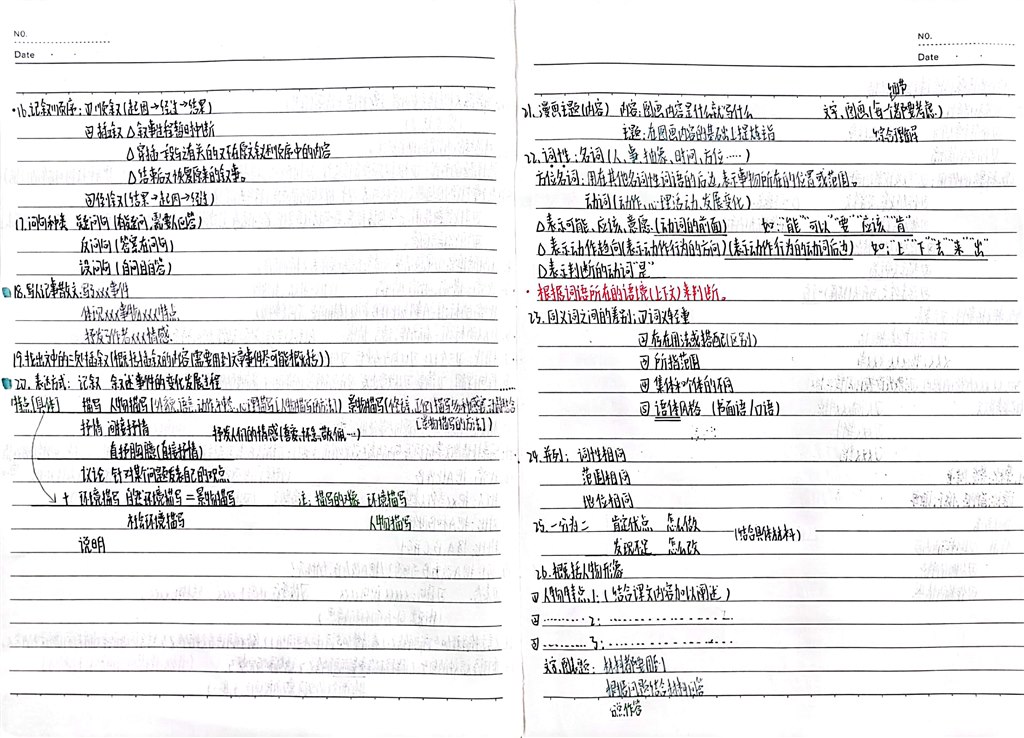 NO.
Date
16.记叙顺序:①顺叙(起因→经过→结果)
②插叙 △叙事过程暂时中断
△穿插一段与有关的又不在原叙述顺序中的内容
△结束后又恢复原来的叙事。
③倒叙(结果→起因→经过)
17.问句种类 疑问句(有疑问,需要人回答)
反问句(答案在问句)
设问句(自问自答)
18.写人记事散文:写了xxx事件
体现xxx事物xxx特点
抒发了作者xxx情感.
19.找出文中的三次插叙(概括插叙的内容(需要用到文章事件尽可能概括))
20.表达方式: 记叙 叙述事件的变化发展过程
特点[具体] 描写 人物描写(外貌,语言,动作,神态,心理描写)[人物描写的方法] 景物描写
[景物描写的方法]
抒情 间接抒情 抒发人们的情感
直抒胸臆(直接抒情)
议论 针对某问题发表自己的观点.
+ 环境描写 自然环境描写=景物描写 注:描写的对象 环境描写
社会环境描写 人物描写
说明
NO.
Date
细节
21.漫画主题(内容) 内容:图画内容是什么就写什么 文字,图画(每一个都要考虑)
主题:在图画内容的基础上提炼主旨 综合理解
22.词性:名词(人,事,抽象,时间,方位……)
方位名词:用在其他名词性词语的后边,表示事物所在的位置或范围。
动词(动作,心理活动,发展变化)
△表示可能,应该,意愿.(动词的前面) 如:"能""可以""要""应该""肯"
△表示动作趋向(表示动作行为的方向)(表示动作行为的动词后边) 如:"上""下""去""来""出"
△表示判断的动词"是"
根据词语所在的语境(上下文)来判断。
23.同义词之间的差别:①词义轻重
②存在用法或搭配(区别)
③所指范围
④集体与个体的不同
⑤语体风格 (书面语/口语)
24.并列: 词性相同
范围相同
地位相同
25.一分为二 肯定优点 怎么做
发现不足 怎么改 (结合具体材料)
26.概括人物形象
①人物特点1:(结合课文内容加以阐述)
②………2:………
③………3:………
文字,图片题: 材料都要用到
根据问题结合材料内容
分点作答